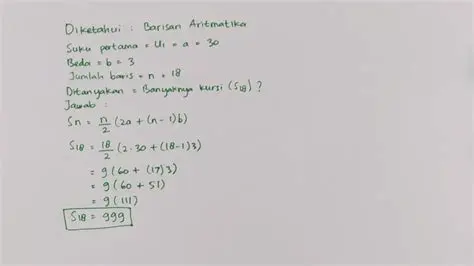 Diketahui : Barisan Aritmatika
Suku pertama = U₁ = a = 30
Beda = b = 3
Jumlah baris = n = 18
Ditanyakan = Banyaknya kursi (S₁₈) ?
Jawab :
Sn = n/2 (2a + (n - 1)b)
S₁₈ = 18/2 (2.30 + (18-1)3)
= 9(60 + (17)3)
= 9(60 + 51)
= 9(111)
S₁₈ = 999